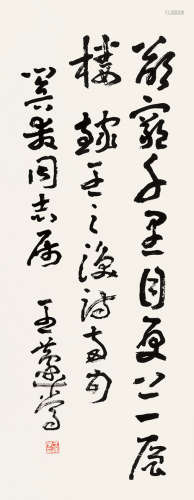 欲窮千里目更上一層
樓 錄王之渙詩兩句
同志属
王蘧常